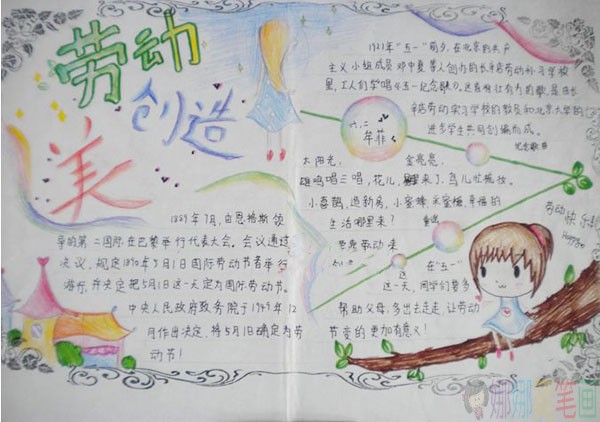 劳动
创造
美
1889年7月,由恩格斯领
导的第二国际在巴黎举行代表大会。会议通过
决议,规定1890年5月1日国际劳动节者举行
游行,并决定把5月1日这一天定为国际劳动节。
中央人民政府政务院于1949年12
月作出决定,将5月1日确定为劳
动节!
1921年"五一"前夕,在北京的共产
主义小组成员邓中夏等人创办的长辛店劳动补习学校
里,工人们学唱《五一纪念歌》。这首雄壮有力的歌,是由长
辛店劳动实习学校的教员和北京大学的
进步学生共同创编而成。
六.二
牟菲
太阳光,金亮亮,
雄鸡唱三唱,花儿醒来了,鸟儿忙梳妆。
小喜鹊,造新房,小蜜蜂,采蜜糖,幸福的
生活哪里来?
要靠劳动来
在"五一"
这一天,同学们要多
帮助父母,多出去走走,让劳动
节变的更加有意义!
劳动快乐
娜娜 笔画